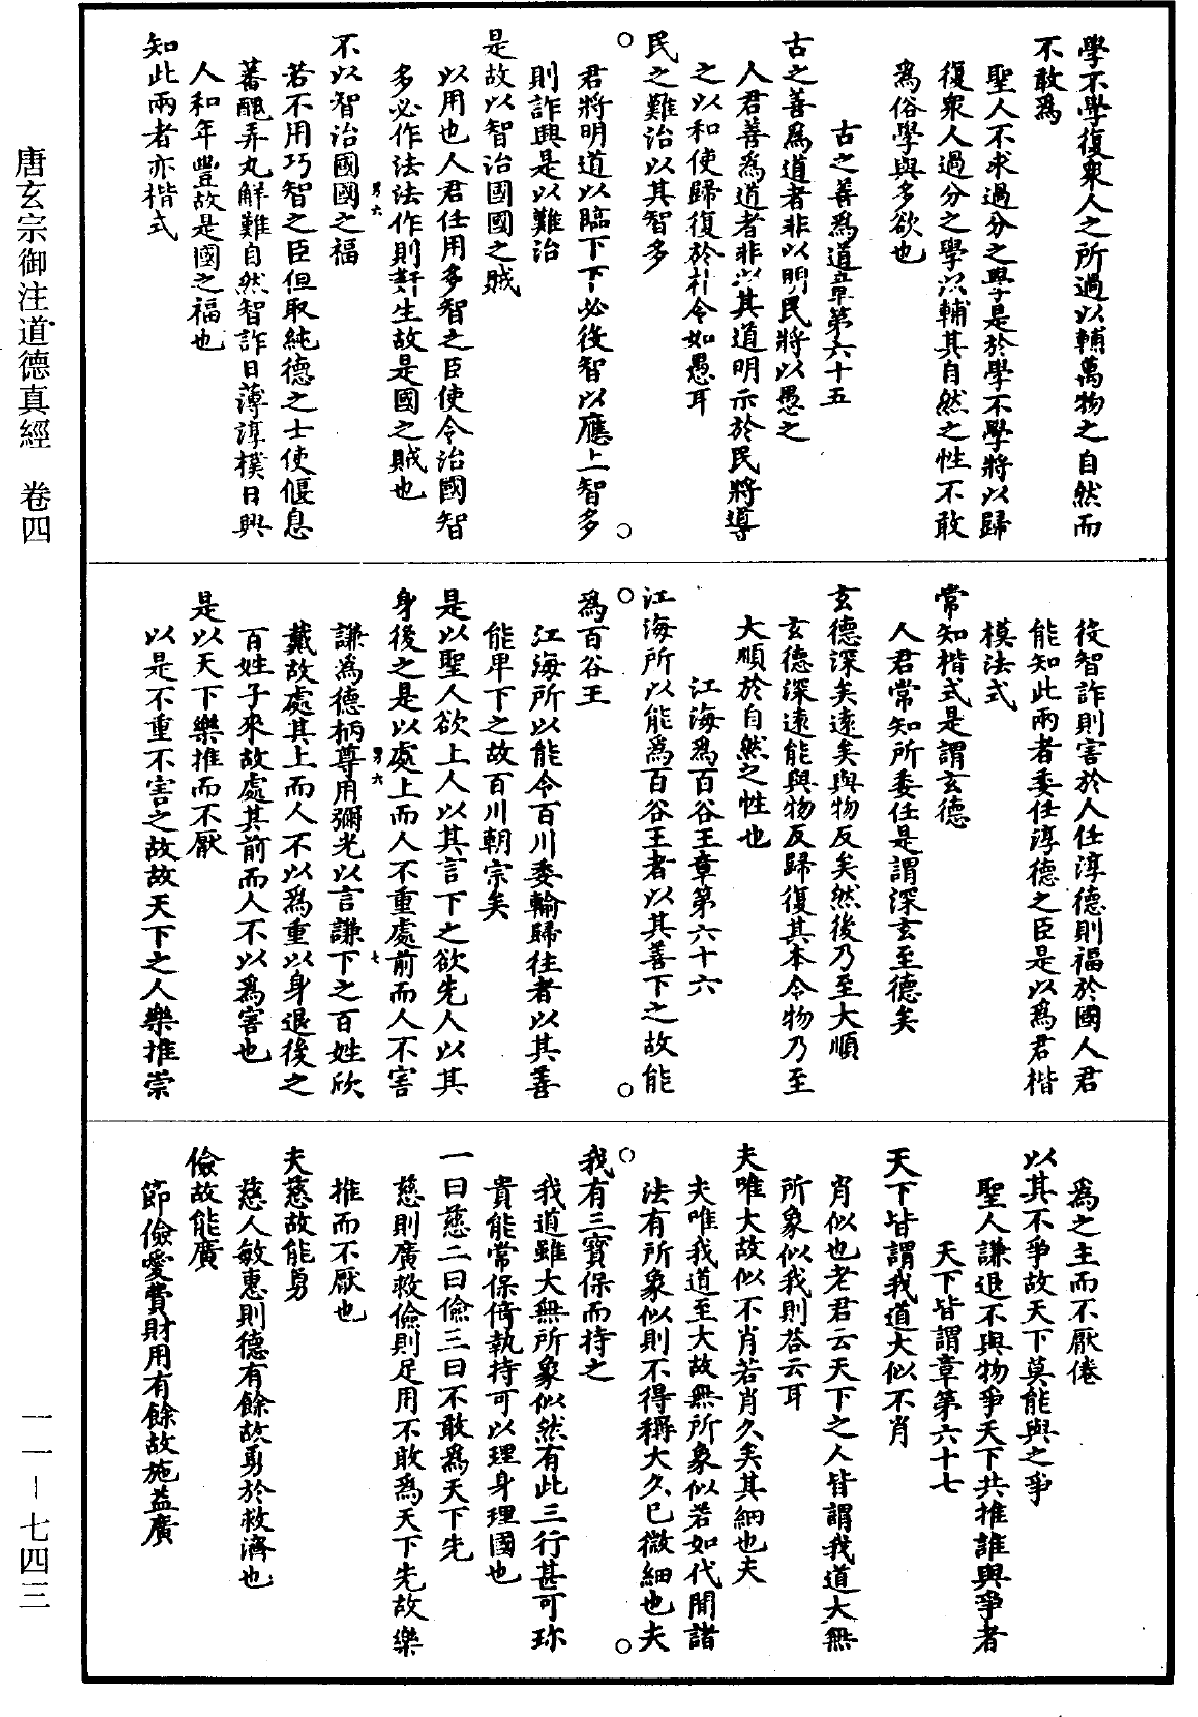 唐玄宗御注道德真經　卷四
一一－七四三
學不學復衆人之所過以輔萬物之自然而
不敢爲
聖人不求過分之學是於學不學將以歸
復衆人過分之學以輔其自然之性不敢
爲俗學與多欲也
古之善爲道章第六十五
古之善爲道者非以明民將以愚之
人君善爲道者非以其道明示於民將導
之以和使歸復於朴令如愚耳
民之難治以其智多
君將明道以臨下下必役智以應上智多
則詐興是以難治
是故以智治國國之賊
以用也人君任用多智之臣使令治國智
多必作法法作則姧生故是國之賊也
不以智治國國之福
若不用巧智之臣但取純德之士使偃息
蕃醜弄丸解難自然智詐日薄淳樸日興
人和年豐故是國之福也
知此兩者亦楷式
役智詐則害於人任淳德則福於國人君
能知此兩者委任淳德之臣是以爲君楷
模法式
常知楷式是謂玄德
人君常知所委任是謂深玄至德矣
玄德深矣遠矣與物反矣然後乃至大順
玄德深遠能與物反歸復其本令物乃至
大順於自然之性也
江海爲百谷王章第六十六
江海所以能爲百谷王者以其善下之故能
爲百谷王
江海所以能令百川委輸歸往者以其善
能卑下之故百川朝宗矣
是以聖人欲上人以其言下之欲先人以其
身後之是以處上而人不重處前而人不害
謙爲德柄尊用彌光以言謙下之百姓欣
戴故處其上而人不以爲重以身退後之
百姓子來故處其前而人不以爲害也
是以天下樂推而不厭
以是不重不害之故故天下之人樂推崇
爲之主而不厭倦
以其不爭故天下莫能與之爭
聖人謙退不與物爭天下共推誰與爭者
天下皆謂章第六十七
天下皆謂我道大似不肖
肖似也老君云天下之人皆謂我道大無
所象似我則答云耳
夫唯大故似不肖若肖久矣其細也夫
夫唯我道至大故無所象似若如代間諸
法有所象似則不得稱大久已微細也夫
我有三寶保而持之
我道雖大無所象似然有此三行甚可珎
貴能常保倚執持可以理身理國也
一曰慈二曰儉三曰不敢爲天下先
慈則廣救儉則足用不敢爲天下先故樂
推而不厭也
夫慈故能勇
慈人敏惠則德有餘故勇於救濟也
儉故能廣
節儉愛費財用有餘故施益廣